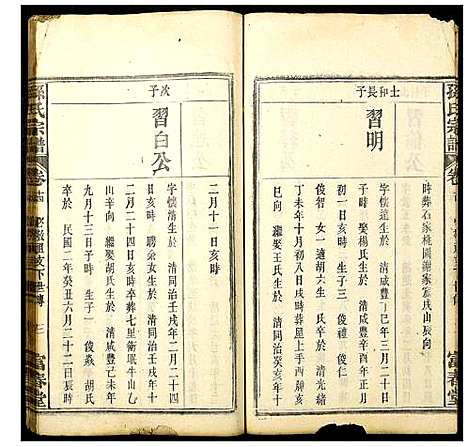 孫氏宗譜
卷
富春堂
時葬石家桃園謝家宸戌山辰向
士和長子
習明
字懷遠生於 清咸豐丁巳年三月二十日
亥時 娶楊氏生於 清咸豐辛酉年正月
初一日亥時 子二 俊德 俊仁
俊智 女一適胡六生 氏卒於 清光緒
丁未年十月初八日戌時葬屋上手酉靜亥
巳向 繼娶王氏生於 清同治癸亥年十
二月十一日亥時
次子
習白公
字懷清生於 清同治壬戌年二月二十四
日亥時 聘余女生於 清同治壬戌年十
二月二十四日亥時卒葬七里衝垠牛山
山辛向 繼娶胡氏生於 清咸豐己未年
九月十三日子時 生子一 俊焱 胡氏
卒於 民國二年癸丑六月二十二日辰時
孫氏宗譜
卷
下世傳
三
富春堂